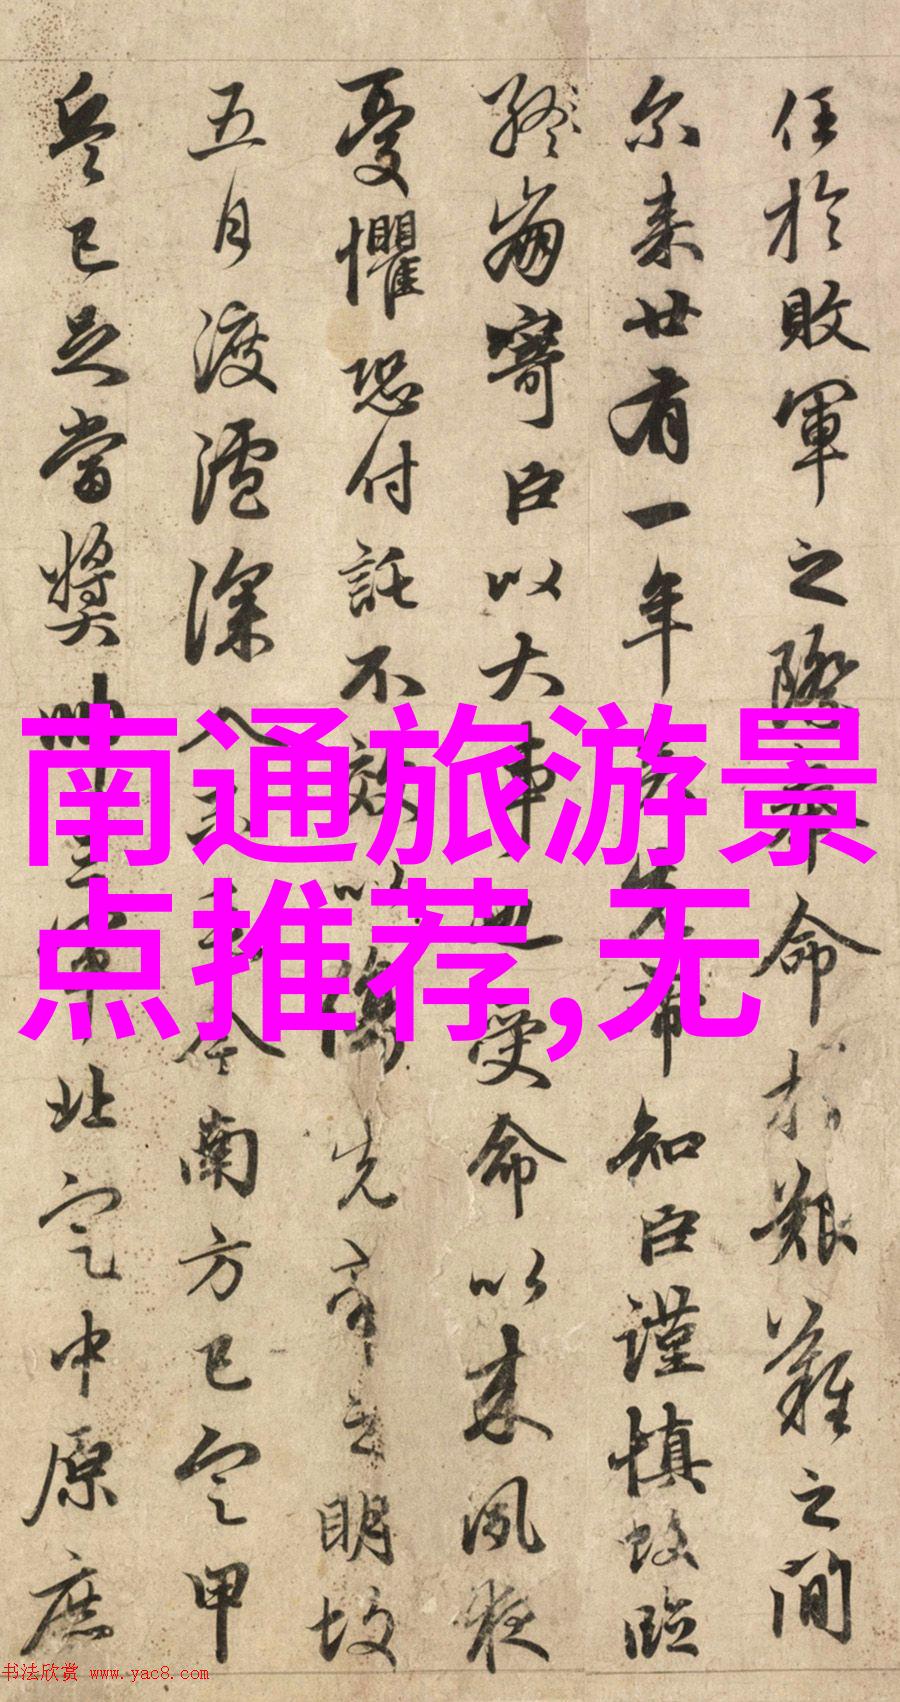 任於敗軍之際奉命於艱難之間
尔来廿有一年矣先帝知臣謹慎故臨
終崩寄臣以大事也受命以来夙夜
憂懼恐付託不效以傷先帝之明故
五月渡瀘深入不毛今南方已定甲
兵已足當獎帥三軍北定中原庶
南通旅游景
点推荐,无
书法欣赏 www.yac8.com